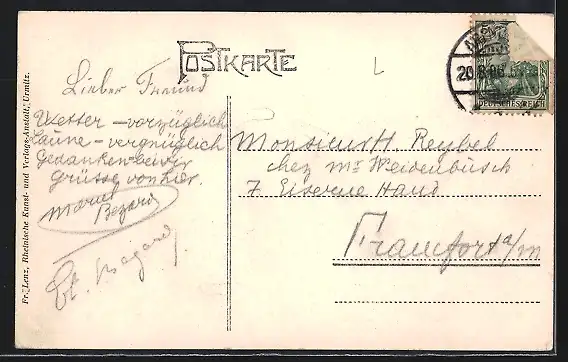 POSTKARTE
L
20
DEUTSCHES REICH
Lieber Freund
Wetter – vorzüglich
Laune – vergnüglich
Gedanken bei dir
Grüsse von hier.
Marcel
Bezard
Monsieur H. Reybel
chez Mr Weidenbusch
7 Eiserne Hand
Francfort a/m
Fr. Lenz, Rheinische Kunst- und Verlags-Anstalt, Urmitz.